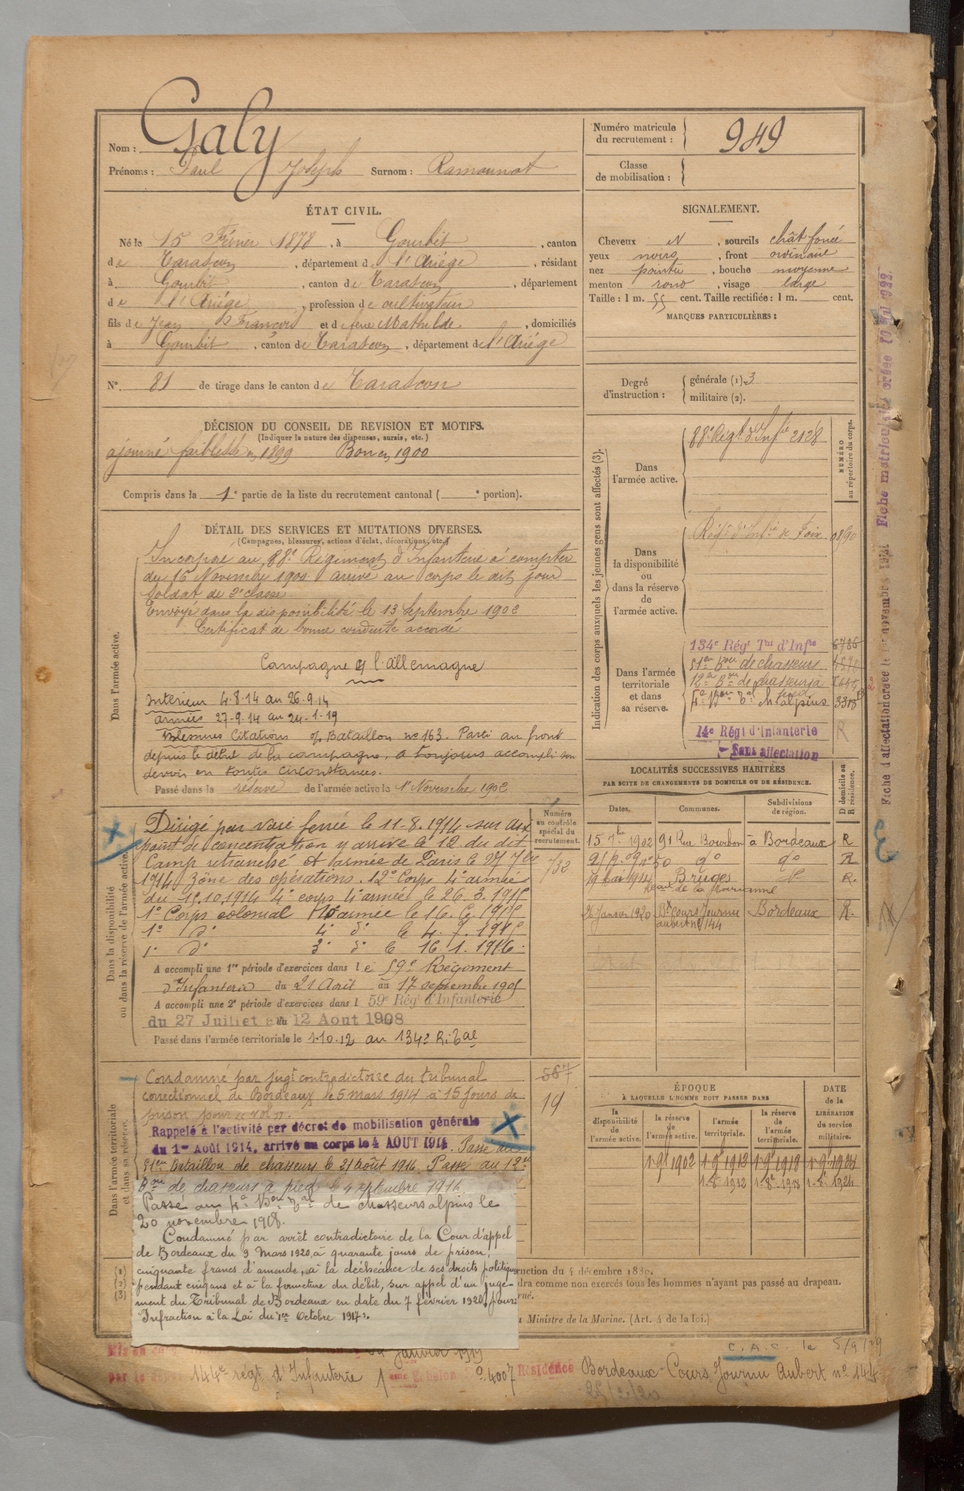 Nom : Galy
Prénoms : Paul Joseph Surnom : Ramounat
Numéro matricule du recrutement : 949
Classe de mobilisation :
ÉTAT CIVIL.
Né le 15 Février 1878, à Gourbit, canton
de Tarascon, département de l'Ariège, résidant
à Gourbit, canton de Tarascon, département
de l'Ariège, profession de cultivateur
fils de Jean François et de Mathilde, domiciliés
à Gourbit, canton de Tarascon, département de l'Ariège
N°. 81 de tirage dans le canton de Tarascon
SIGNALEMENT.
Cheveux N, sourcils chât foncé
yeux noirs, front ordinaire
nez pointu, bouche moyenne
menton rond, visage large
Taille : 1 m. 55 cent. Taille rectifiée : 1 m. cent.
MARQUES PARTICULIÈRES :
Degré d'instruction : générale (1). 3
militaire (2).
DÉCISION DU CONSEIL DE REVISION ET MOTIFS.
(Indiquer la nature des dispenses, sursis, etc.)
ajourné faiblesse en 1899 Bon en 1900
Compris dans la 1e partie de la liste du recrutement cantonal ( e portion).
DÉTAIL DES SERVICES ET MUTATIONS DIVERSES.
(Campagnes, blessures, actions d'éclat, décorations, etc.)
Dans l'armée active.
Incorporé au 88e Régiment d'Infanterie à compter
du 16 Novembre 1900 arrivé au corps le dit jour
Soldat de 2e classe
Envoyé dans la disponibilité le 13 Septembre 1902
Certificat de bonne conduite accordé
Campagne c/ l'Allemagne
Intérieur 4.8.14 au 26.9.14
armées 27-9-14 au 24-1-19
Blessures Citations O/ Bataillon no 163. Parti au front
depuis le début de la campagne, a toujours accompli son
devoir en toutes circonstances.
Passé dans la réserve de l'armée active le 1er Novembre 1902
Indication des corps auxquels les jeunes gens sont affectés (3).
NUMÉRO au répertoire du corps.
Dans l'armée active.
88e Régt d'Infie 2128
Dans la disponibilité ou dans la réserve de l'armée active.
Régt d'Infie de Foix 0890
Dans l'armée territoriale et dans sa réserve.
134e Régt Tal d'Infie
51e Bon de chasseurs
12e Bon de chasseurs à pied
4e Bon Tal Ch. alpins
14e Régt d'Infanterie
Sans affectation
R
LOCALITÉS SUCCESSIVES HABITÉES
PAR SUITE DE CHANGEMENTS DE DOMICILE OU DE RÉSIDENCE.
D domicile ou R résidence.
Dates. Communes. Subdivisions de région.
15 1902 91 Rue Bourbon à Bordeaux R
do do R
1914 Bruges R.
24 Janvier 1920 Cours Journu Aubert no 144 Bordeaux R.
Numéro au contrôle spécial du recrutement.
Dans la disponibilité ou dans la réserve de l'armée active.
Dirigé par voie ferrée le 11-8-1914 sur
point de concentration y arrive le 12 du dit
Camp retranché et armée de Paris le 27 7bre
1914 Zône des opérations. 12e Corps 4e armée
du 15.10.1914 4e corps 4e armée le 26.3.1915
1er Corps colonial 10e armée le 16.6.1915
1er do 4e do le 4.7.1915
1er do 3e do le 16.1.1916.
A accompli une 1re période d'exercices dans le 59e Régiment
d'Infanterie du 21 Août au 17 septembre 1905
A accompli une 2e période d'exercices dans l 59e Régt d'Infanterie
du 27 Juillet au 12 Aout 1908
Passé dans l'armée territoriale le 1.10.12 au 134e R. Tal
Dans l'armée territoriale et dans sa réserve.
587
19
Condamné par jugt contradictoire du tribunal
correctionnel de Bordeaux le 5 mars 1914 à 15 jours de
prison pour
Rappelé à l'activité par décret de mobilisation générale
du 1er Août 1914, arrivé au corps le 4 AOUT 1914. Passé au
51e Bataillon de chasseurs le 21 août 1916. Passé au 12e
Bon de chasseurs à pied le 4 septembre 1916
Passé au 4e Bon Tal de chasseurs alpins le
20 novembre 1918.
Condamné par arrêt contradictoire de la Cour d'appel
de Bordeaux du 9 Mars 1920, à quarante jours de prison,
cinquante francs d'amende, à la déchéance de ses droits politiques
pendant cinq ans et à la fermeture du débit, sur appel d'un juge-
ment du Tribunal de Bordeaux en date du 7 février 1920, pour:
Infraction à la Loi du 1er Octobre 1917.
ÉPOQUE
À LAQUELLE L'HOMME DOIT PASSER DANS
la disponibilité de l'armée active. la réserve de l'armée active. l'armée territoriale. la réserve de l'armée territoriale.
DATE de la LIBÉRATION du service militaire.
(1)
(2)
(3)
ruction du 4 décembre 1889.
dra comme non exercés tous les hommes n'ayant pas passé au drapeau.
u Ministre de la Marine. (Art. 4 de la loi.)
C.A.C. le 5/9/29
144e régt d'Infanterie
Résidence Bordeaux Cours Journu Aubert no 144
Fiche d'affectation créée le 1er novembre 1921 Fiche matriculaire créée